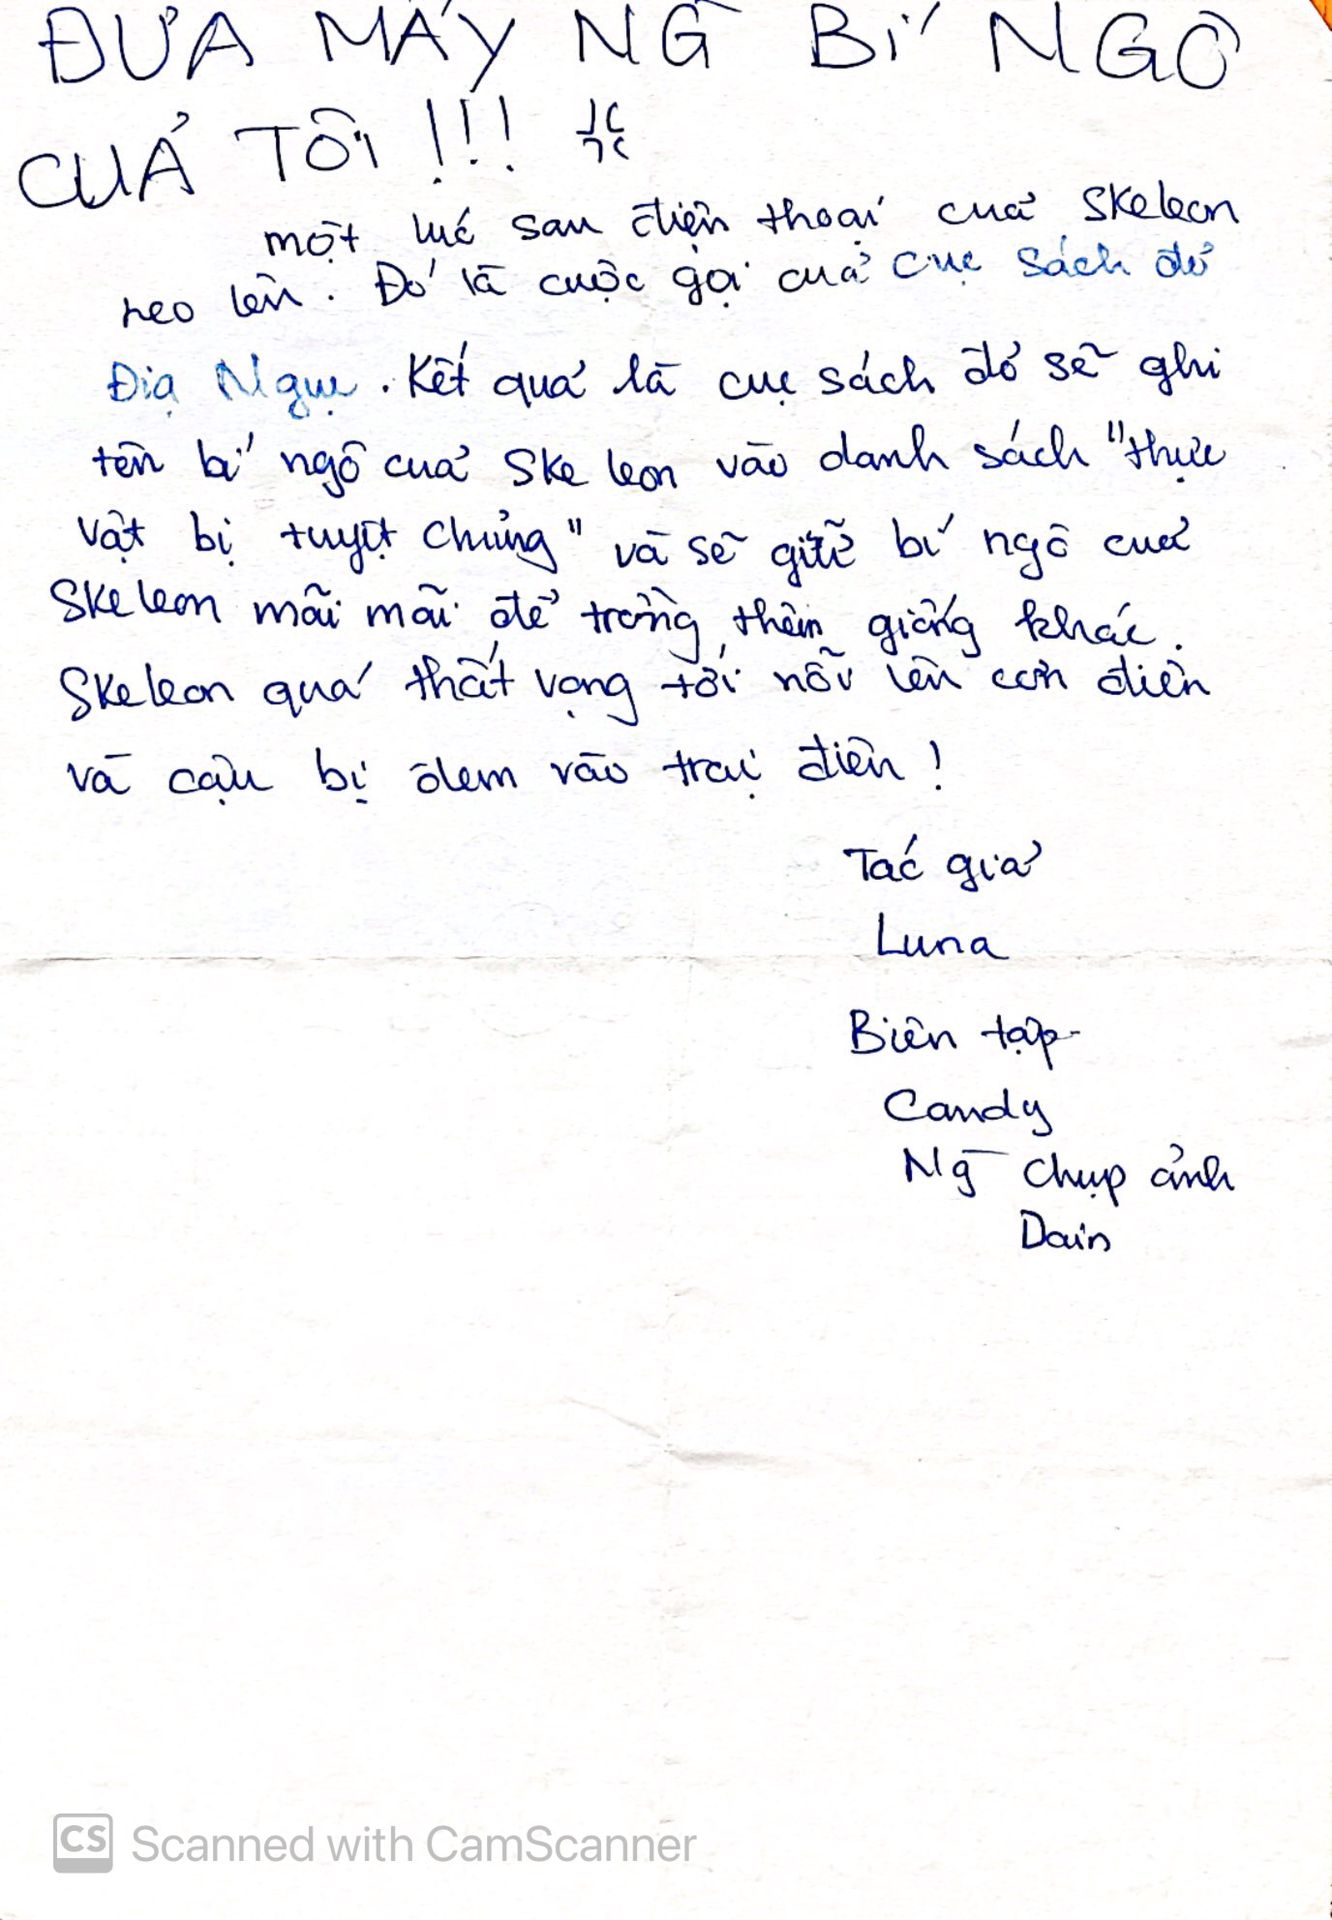 ĐƯA MẤY NG̃ BÍ NGÔ
CUẢ TÔI !!!
một lúc sau điện thoại cuả Skeleon
reo lên. Đó là cuộc gọi cuả cục sách đỏ
Địa Ngục. Kết quả là cục sách đỏ sẽ ghi
tên bí ngô cuả Skeleon vào danh sách "thực
vật bị tuyệt chủng" và sẽ giữ bí ngô cuả
Skeleon mãi mãi để trồng thêm giống khác.
Skeleon quá thất vọng tới nỗi lên cơn điên
và cậu bị đem vào trại điên!
Tác giả
Luna
Biên tập
Candy
Ng̃ chụp ảnh
Dain
CS Scanned with CamScanner